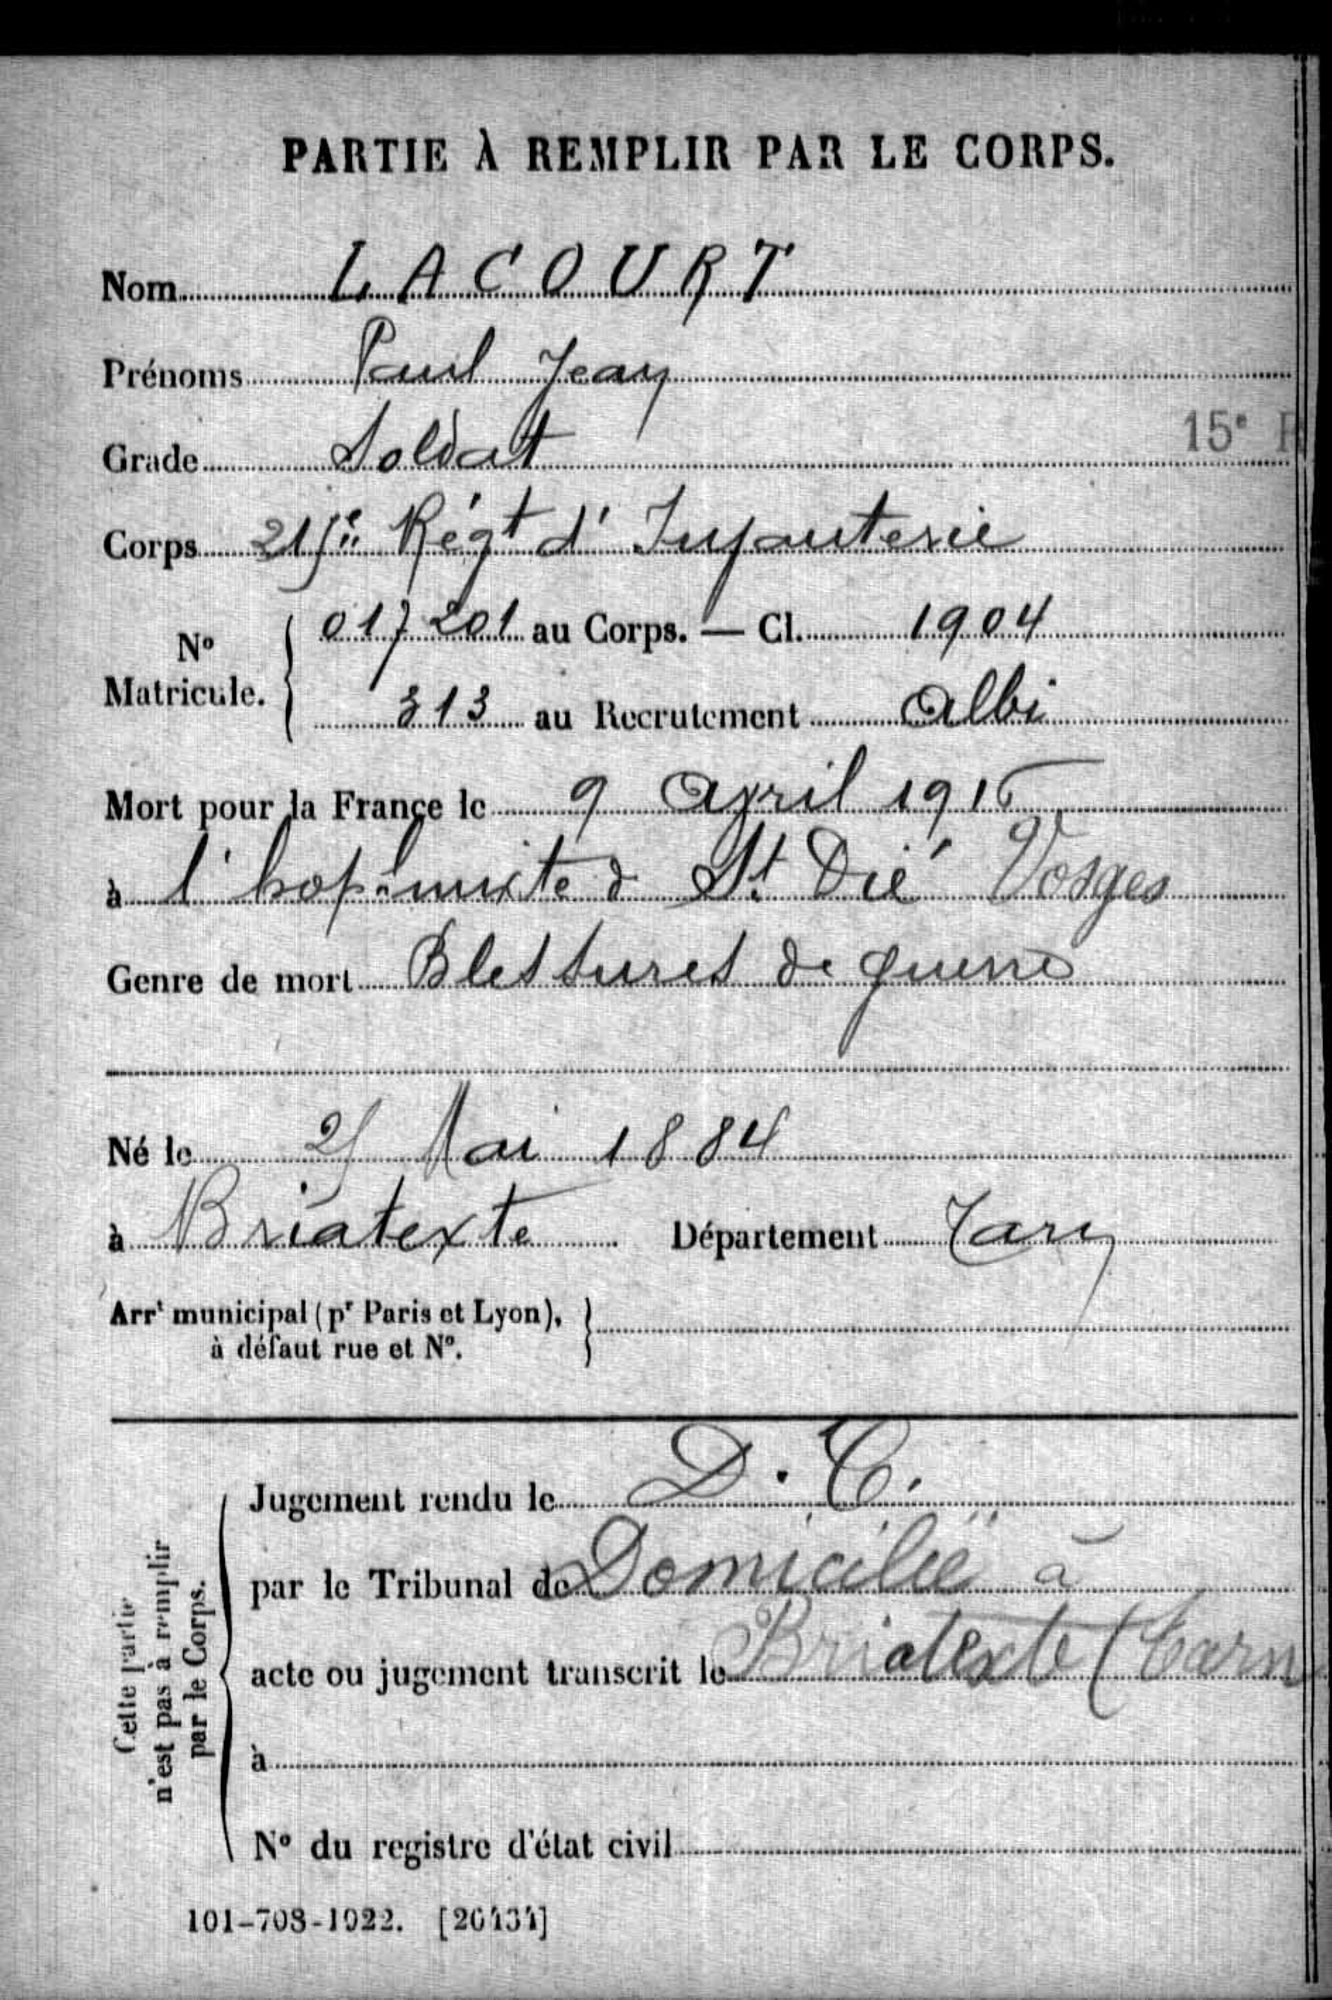 PARTIE À REMPLIR PAR LE CORPS.
Nom LACOURT
Prénoms Paul Jean
Grade Soldat
15e R
Corps 215è Régt d'Infanterie
No Matricule. 017201 au Corps. — Cl. 1904
313 au Recrutement Albi
Mort pour la France le 9 Avril 1915
à l'hop. mixte d St Dié Vosges
Genre de mort Blessures de guerre
Né le Mai 1884
à Briatexte Département Tarn
Arrt municipal (pr Paris et Lyon),
à défaut rue et No.
Cette partie
n'est pas à remplir
par le Corps.
Jugement rendu le D. C.
par le Tribunal de Domicilié à
acte ou jugement transcrit le Briatexte (Tarn
à
No du registre d'état civil
101-708-1922. [26434]